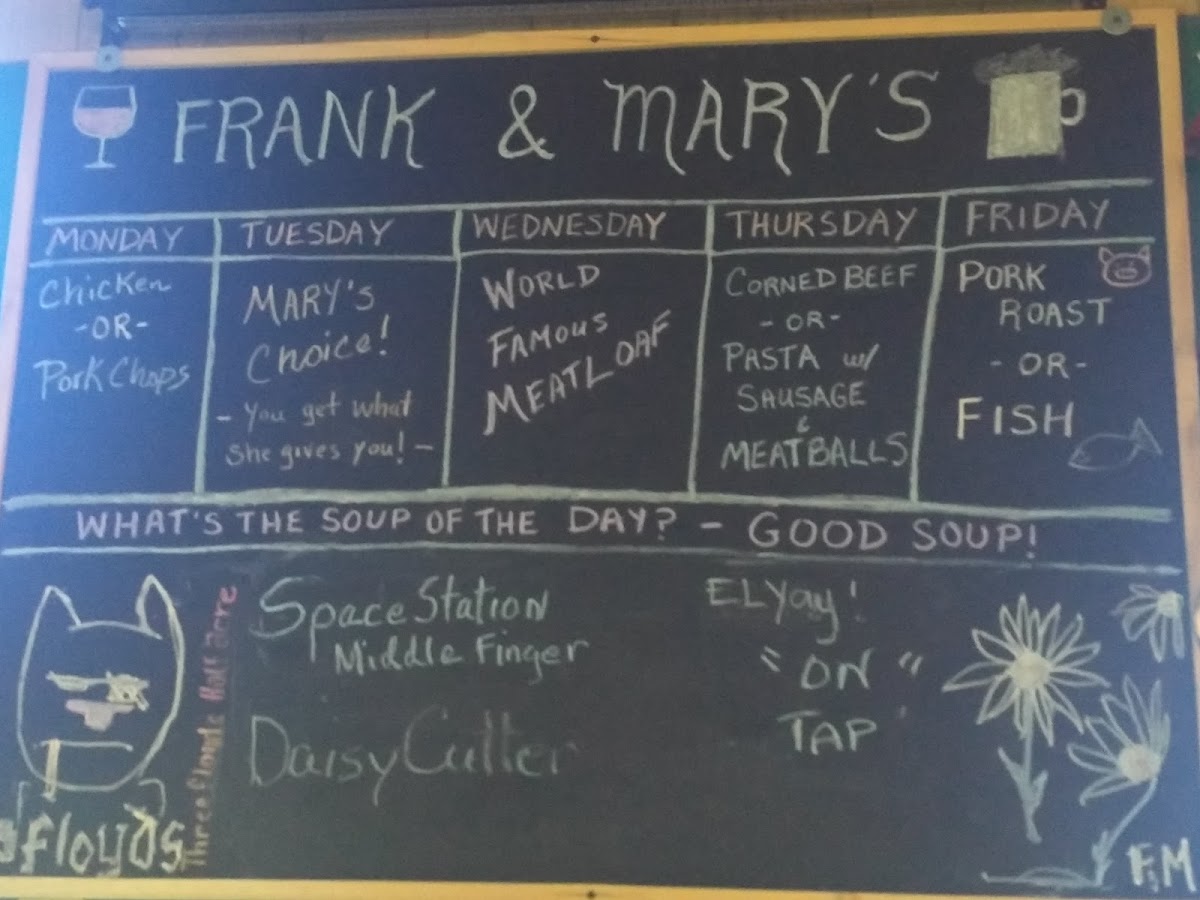 FRANK & MARY'S
MONDAY
Chicken
-OR-
Pork Chops
TUESDAY
MARY'S
Choice!
- You get what
She gives you! -
WEDNESDAY
WORLD
FAMOUS
MEATLOAF
THURSDAY
CORNED BEEF
- OR -
PASTA w/
SAUSAGE
&
MEATBALLS
FRIDAY
PORK
ROAST
- OR -
FISH
WHAT'S THE SOUP OF THE DAY? - GOOD SOUP!
floyds
Three Floyds Half Acre
Space Station
Middle Finger
Daisy Cutter
ELYay!
"ON"
TAP
F&M